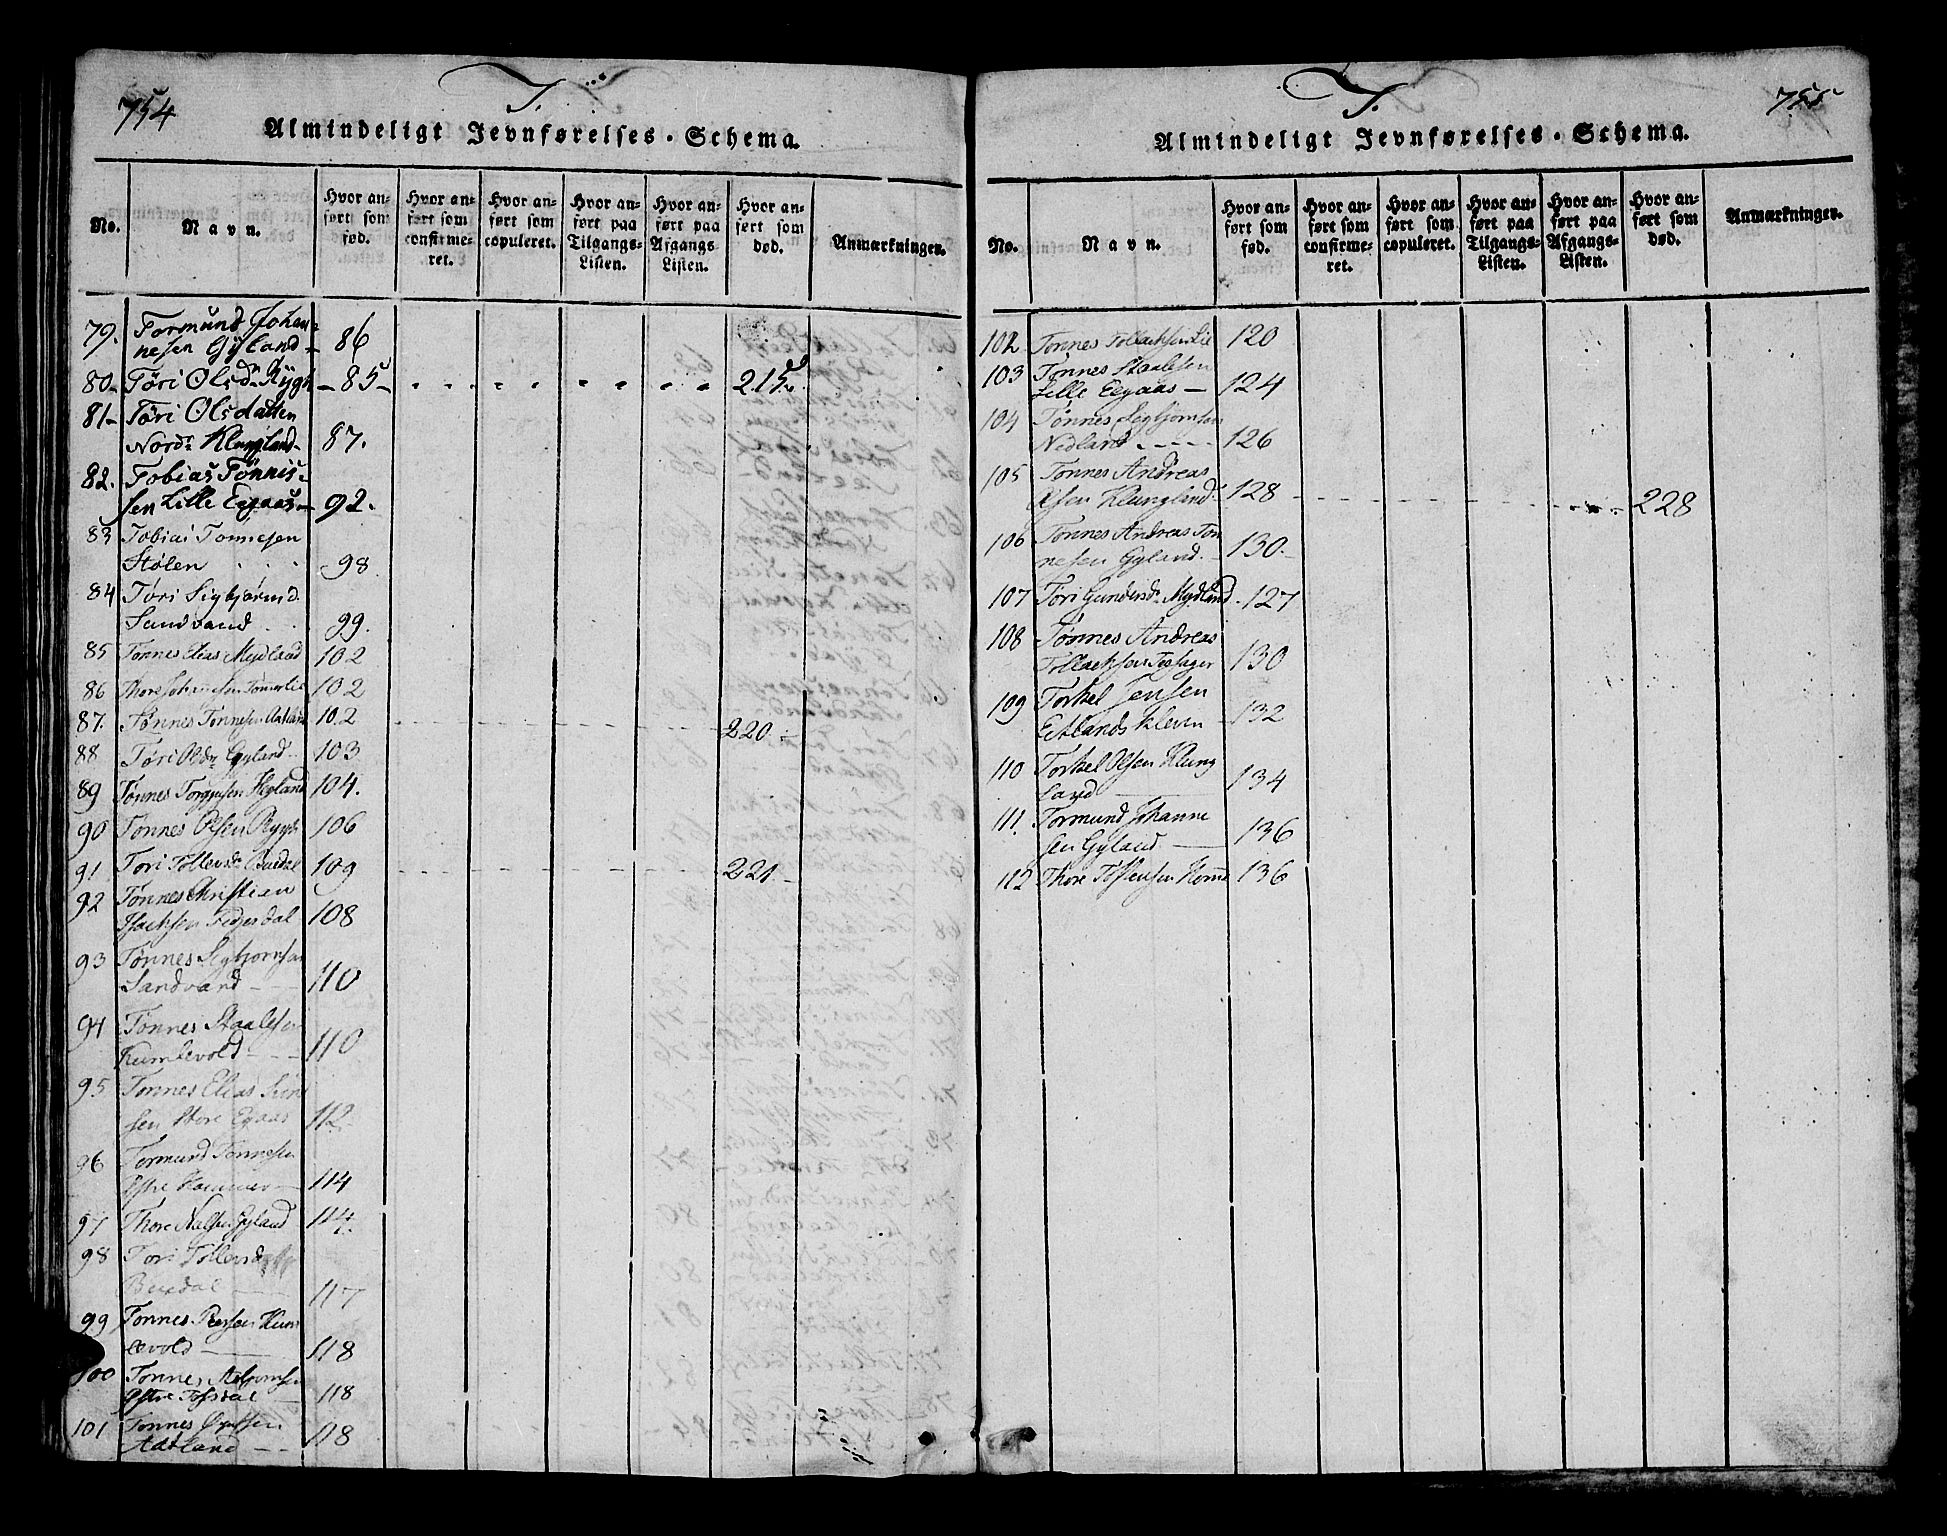 754
T.
Almindeligt Jevnførelses-Schema.
No.
Navn.
Hvor anført som fød.
Hvor anført som confirmeret.
Hvor anført som copuleret.
Hvor anført paa Tilgangs-Listen.
Hvor anført paa Afgangs Listen.
Hvor anført som død.
Anmærkninger.
79. Tormund Johan-
nesen Gyland 86
80 Töri Olsdr Rygh 85 215
81 Töri Olsdatten
Nordr Klungland 87.
82. Tobias Tönnis-
sen Lille Eegaas 92.
83 Tobias Tønnesen
Stølen 98
84 Töri Sigbjørnsd.
Sandvand 99.
85 Tønnes Elias Mydland 102
86 Thore Tømerlie 102
87. Tønnes Tønnesen 102 220
88 Töri Olsdr Gyland 103
89 Tønnes Hegland 104.
90 Tønnes Olsen Rygh 106
91 Tori Tollevsdr Buxdal 109 221
92 Tønnes Christien
Isachsen Fedjesdal 108
93 Tønnes Sigbjørnsen
Sandvand 110
94 Tønnes Staalesen
Kumlevold 110
95 Tønnes Elias
sen Store Egaas 112
96 Tormund Tønnesen
114
97 Thore Gyland 114.
98 Tori Tollevsd
Buxdal 117
99 Tønnes Pedersen Kum
levold 118
100 Tønnes
Østre Tofsdal 118
101 Tønnes
Aatland 118
755
T.
Almindeligt Jevnførelses-Schema.
No.
Navn.
Hvor anført som fød.
Hvor anført som confirmeret.
Hvor anført som copuleret.
Hvor anført paa Tilgangs-Listen.
Hvor anført paa Afgangs-Listen.
Hvor anført som død.
Anmærkninger.
102 Tønnes Tollachsen Lie 120
103 Tønnes Staalesen
Lille Eegaas 124
104 Tønnes Sigbjørnsen
Nedland 126
105 Tønnes Andreas
Olsen Klungland 128 228
106 Tønnes Andreas Tøn
nesen Gyland 130
107 Töri Gundersdr Mydland 127
108 Tønnes Andreas
Tollachsen 130
109 Torkel Jensen
Eitlands Kleven 132
110 Torkel Olsen Klung
land 134
111. Tormund Johanne
sen Gyland 136
112 Thore 136